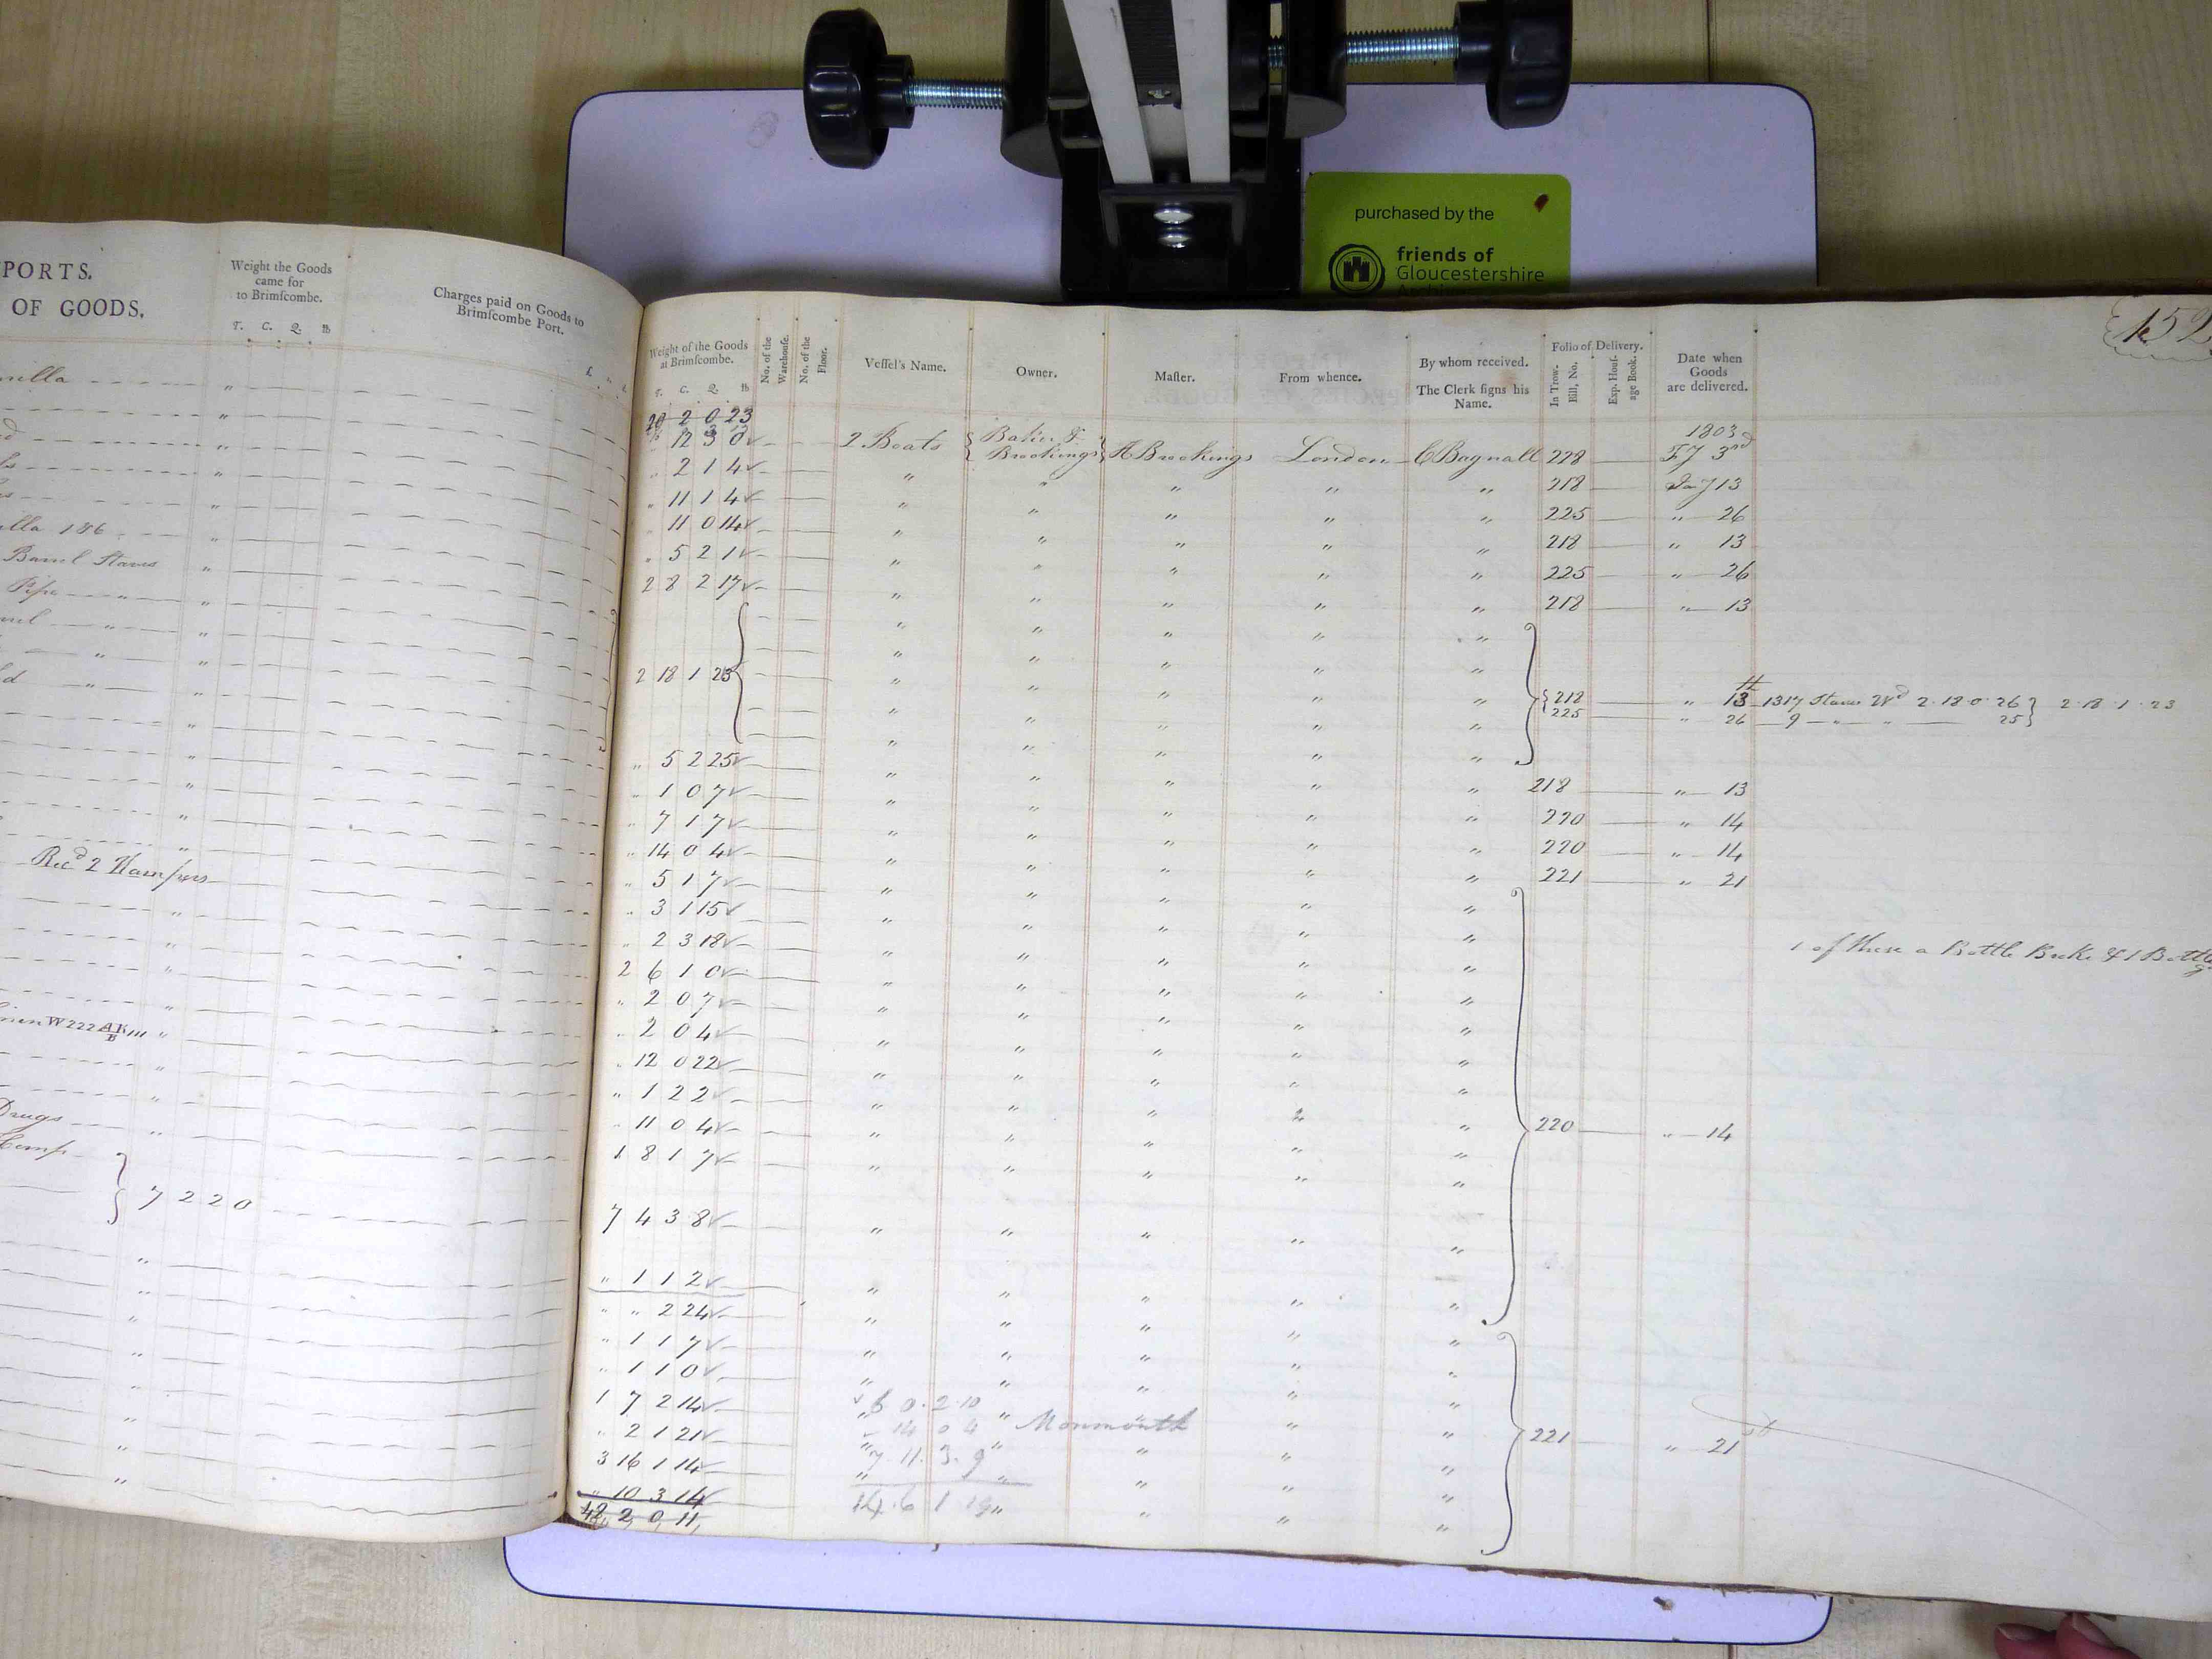 purchased by the
friends of
Gloucestershire
PORTS.
OF GOODS.
Weight the Goods
came for
to Brimſcombe.
T. C. Q. ℔
Charges paid on Goods to
Brimſcombe Port.
Barrel Staves
Recd 2 Hampers
W222
Drugs
7 2 2 0
152
Weight of the Goods
at Brimſcombe.
T. C. Q. ℔
No. of the
Warehouſe.
No. of the
Floor.
Veſſel's Name.
Owner.
Maſter.
From whence.
By whom received.
The Clerk ſigns his
Name.
Folio of Delivery.
In Trow.
Bill, No.
Exp. Houſ-
age Book.
Date when
Goods
are delivered.
20 2 0 23
1803
" 12 3 0 2 Boats Baker & Brookings A Brookings London C Bagnall 228 Fy 3rd
" 2 1 4 " " " " " 218 Jany 13
" 11 1 4 " " " " " 225 " 26
" 11 0 14 " " " " " 218 " 13
" 5 2 1 " " " " " 225 " 26
2 8 2 17 " " " " " 218 " 13
2 18 1 23 " " " " " 218 " 13 1317 Staves 2 . 18 . 0 . 26 } 2 . 18 . 1 . 23
225 " 26 9 " " 25 }
" 5 2 25 " " " " " 218 " 13
" 1 0 7 " " " " " 220 " 14
" 7 1 7 " " " " " 220 " 14
" 14 0 4 " " " " " 221 " 21
" 5 1 7 " " " " "
" 3 1 15 " " " " "
" 2 3 18 " " " " " 1 of these a Bottle Broke & 1 Bottle
2 6 1 0 " " " " "
" 2 0 7 " " " " "
" 2 0 4 " " " " "
" 12 0 22 " " " " "
" 1 2 2 " " " " "
" 11 0 4 " " " " " 220 " 14
1 8 1 7 " " " " "
7 4 3 8 " " " " "
" 1 1 2 " " " " "
" " 2 24 " " " " "
" 1 1 7 " " " " "
" 1 1 0 " " " " "
1 7 2 14 0 . 2 . 10
" 2 1 21 14 0 4 Monmouth 221 " 21st
3 16 1 14 7 . 11 . 3 . 9
" 10 3 14 14 . 6 1
42 2 0 11